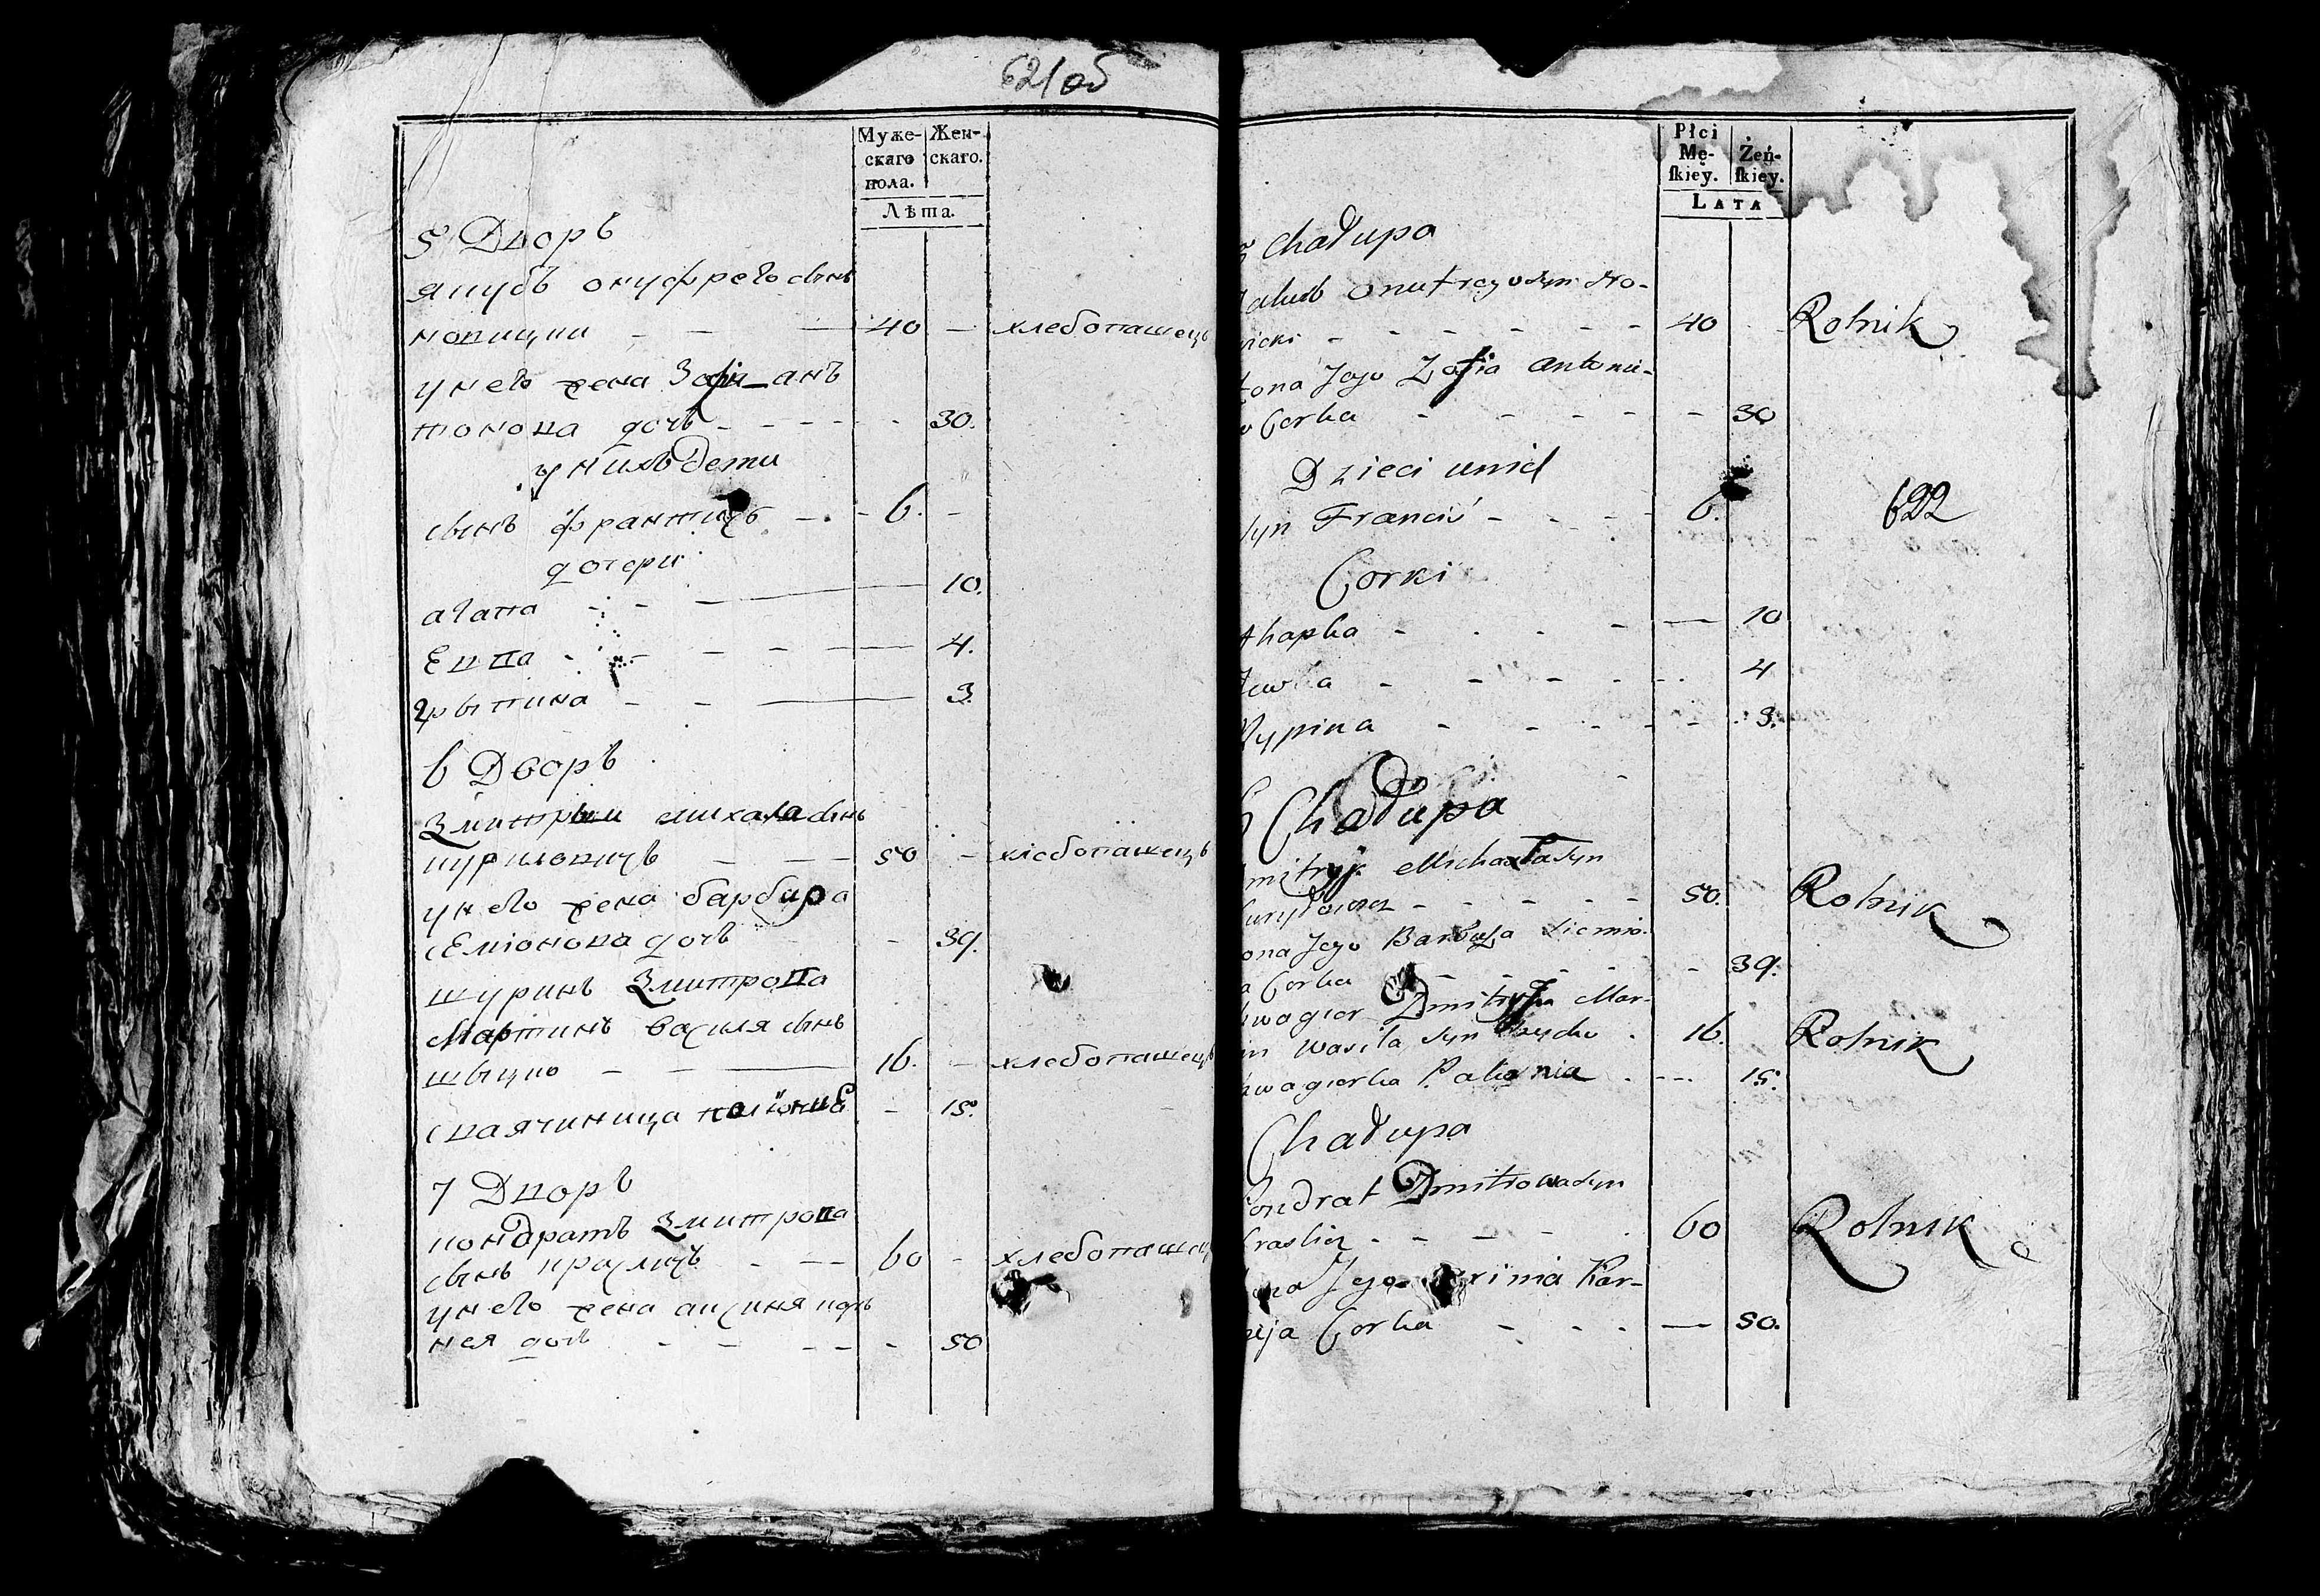 62/об
Муже-
скаго
пола.
Жен-
скаго.
Лѣта.
5 Дворъ
якубъ онуфрего сынъ
новицки 40 — хлебопашецъ
у него жена Зофия ан-
тонова дочь 30.
у нихъ Дети
сынъ францишъ 6. —
дочери
агапа 10.
Евва 4.
грыпина 3.
6 Дворъ
Змитрыи михала сынъ
куриловичъ 50 — хлебопашецъ
у него жена барбара
семіонова дочъ 39.
шуринъ Змитрова
Мартинъ василя сынъ
швецко 16. — хлебопашецъ
своячиница 15.
7 Дворъ
кондратъ Змитрова
сынъ 60 — хлебопашец
у него жена аксиня кор-
нея дочъ 50
Płci
Mę-
ſkiey.
Żeń-
ſkiey.
LATA
5 Chałupa
Jakub Onufrego syn No-
wicki 40 Rolnik
żona Jego Zofia Antonie-
w Corka 30
Dzieci u nich
syn Franciś 6. 622
Corki
Ahapka 10
Jewka 4
Rypina 3.
6 Chałupa
Dmitryi Michała syn
Kuryłowicz 50. Rolnik
żona Jego Barbara Siemio-
a Corka 39.
szwagier Dmitryja Mar-
cin Wasila syn 16. Rolnik
szwagierka Palania 15.
Chałupa
Kondrat Dmitrowa syn
60 Rolnik
żona Jego Kor-
neja Corka 50.